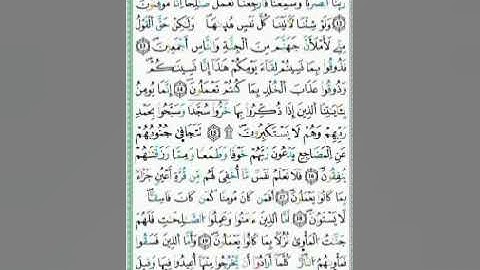 رَبَّنَآ أَبْصَرْنَا وَسَمِعْنَا فَٱرْجِعْنَا نَعْمَلْ صَـٰلِحًا إِنَّا مُوقِنُونَ
۝١٢ وَلَوْ شِئْنَا لَـَٔاتَيْنَا كُلَّ نَفْسٍ هُدَىٰهَا وَلَـٰكِنْ حَقَّ ٱلْقَوْلُ
مِنِّى لَأَمْلَأَنَّ جَهَنَّمَ مِنَ ٱلْجِنَّةِ وَٱلنَّاسِ أَجْمَعِينَ ۝١٣
فَذُوقُوا۟ بِمَا نَسِيتُمْ لِقَآءَ يَوْمِكُمْ هَـٰذَآ إِنَّا نَسِينَـٰكُمْ
وَذُوقُوا۟ عَذَابَ ٱلْخُلْدِ بِمَا كُنتُمْ تَعْمَلُونَ ۝١٤ إِنَّمَا يُؤْمِنُ
بِـَٔايَـٰتِنَا ٱلَّذِينَ إِذَا ذُكِّرُوا۟ بِهَا خَرُّوا۟ سُجَّدًا وَسَبَّحُوا۟ بِحَمْدِ
رَبِّهِمْ وَهُمْ لَا يَسْتَكْبِرُونَ ۩ ۝١٥ تَتَجَافَىٰ جُنُوبُهُمْ
عَنِ ٱلْمَضَاجِعِ يَدْعُونَ رَبَّهُمْ خَوْفًا وَطَمَعًا وَمِمَّا رَزَقْنَـٰهُمْ
يُنفِقُونَ ۝١٦ فَلَا تَعْلَمُ نَفْسٌ مَّآ أُخْفِىَ لَهُم مِّن قُرَّةِ أَعْيُنٍ جَزَآءًۢ
بِمَا كَانُوا۟ يَعْمَلُونَ ۝١٧ أَفَمَن كَانَ مُؤْمِنًا كَمَن كَانَ فَاسِقًا
لَّا يَسْتَوُۥنَ ۝١٨ أَمَّا ٱلَّذِينَ ءَامَنُوا۟ وَعَمِلُوا۟ ٱلصَّـٰلِحَـٰتِ فَلَهُمْ
جَنَّـٰتُ ٱلْمَأْوَىٰ نُزُلًۢا بِمَا كَانُوا۟ يَعْمَلُونَ ۝١٩ وَأَمَّا ٱلَّذِينَ فَسَقُوا۟
فَمَأْوَىٰهُمُ ٱلنَّارُ كُلَّمَآ أَرَادُوٓا۟ أَن يَخْرُجُوا۟ مِنْهَآ أُعِيدُوا۟ فِيهَا وَقِيلَ